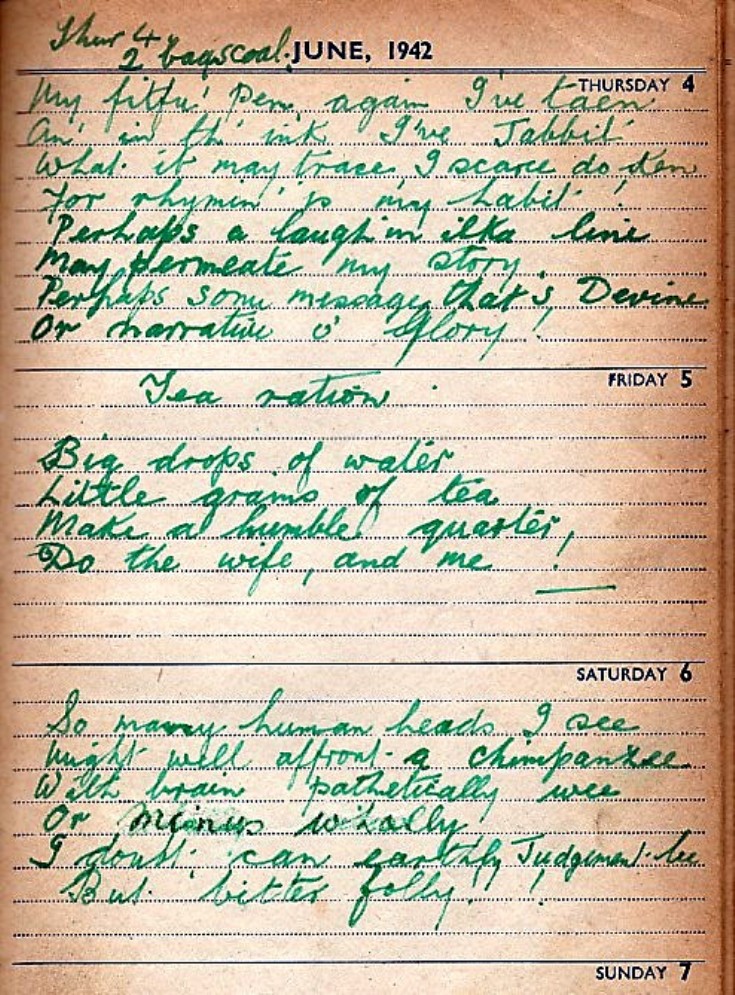 Thur 4
2 bags coal. JUNE, 1942
THURSDAY 4
My fitfu' pen again I've taen
An' in th' ink I've Jabbit
What it may trace I scarce do ken
For rhymin' is my habit!
Perhaps a laugh in ilka line
May permeate my story.
Perhaps some message that's Devine
Or narrative o' Glory!
FRIDAY 5
Tea ration.
Big drops of water
Little grams of tea
Make a humble quarter,
Do the wife, and me!
SATURDAY 6
So many human heads I see
Might well affront a chimpanzee
With brain pathetically wee
Or minus wholly
I doubt can earthly Judgement be
But bitter folly!!
SUNDAY 7